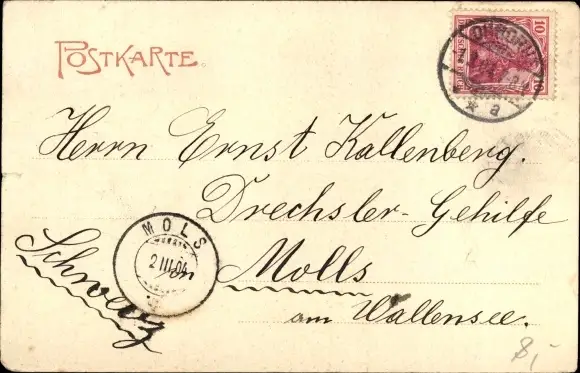 POSTKARTE.
10 10
OHRDRUF
* a
Herrn Ernst Kallenberg.
Drechsler-Gehilfe
in Molls
am Wallensee.
Schweiz
MOLS
2 III 04
8,-